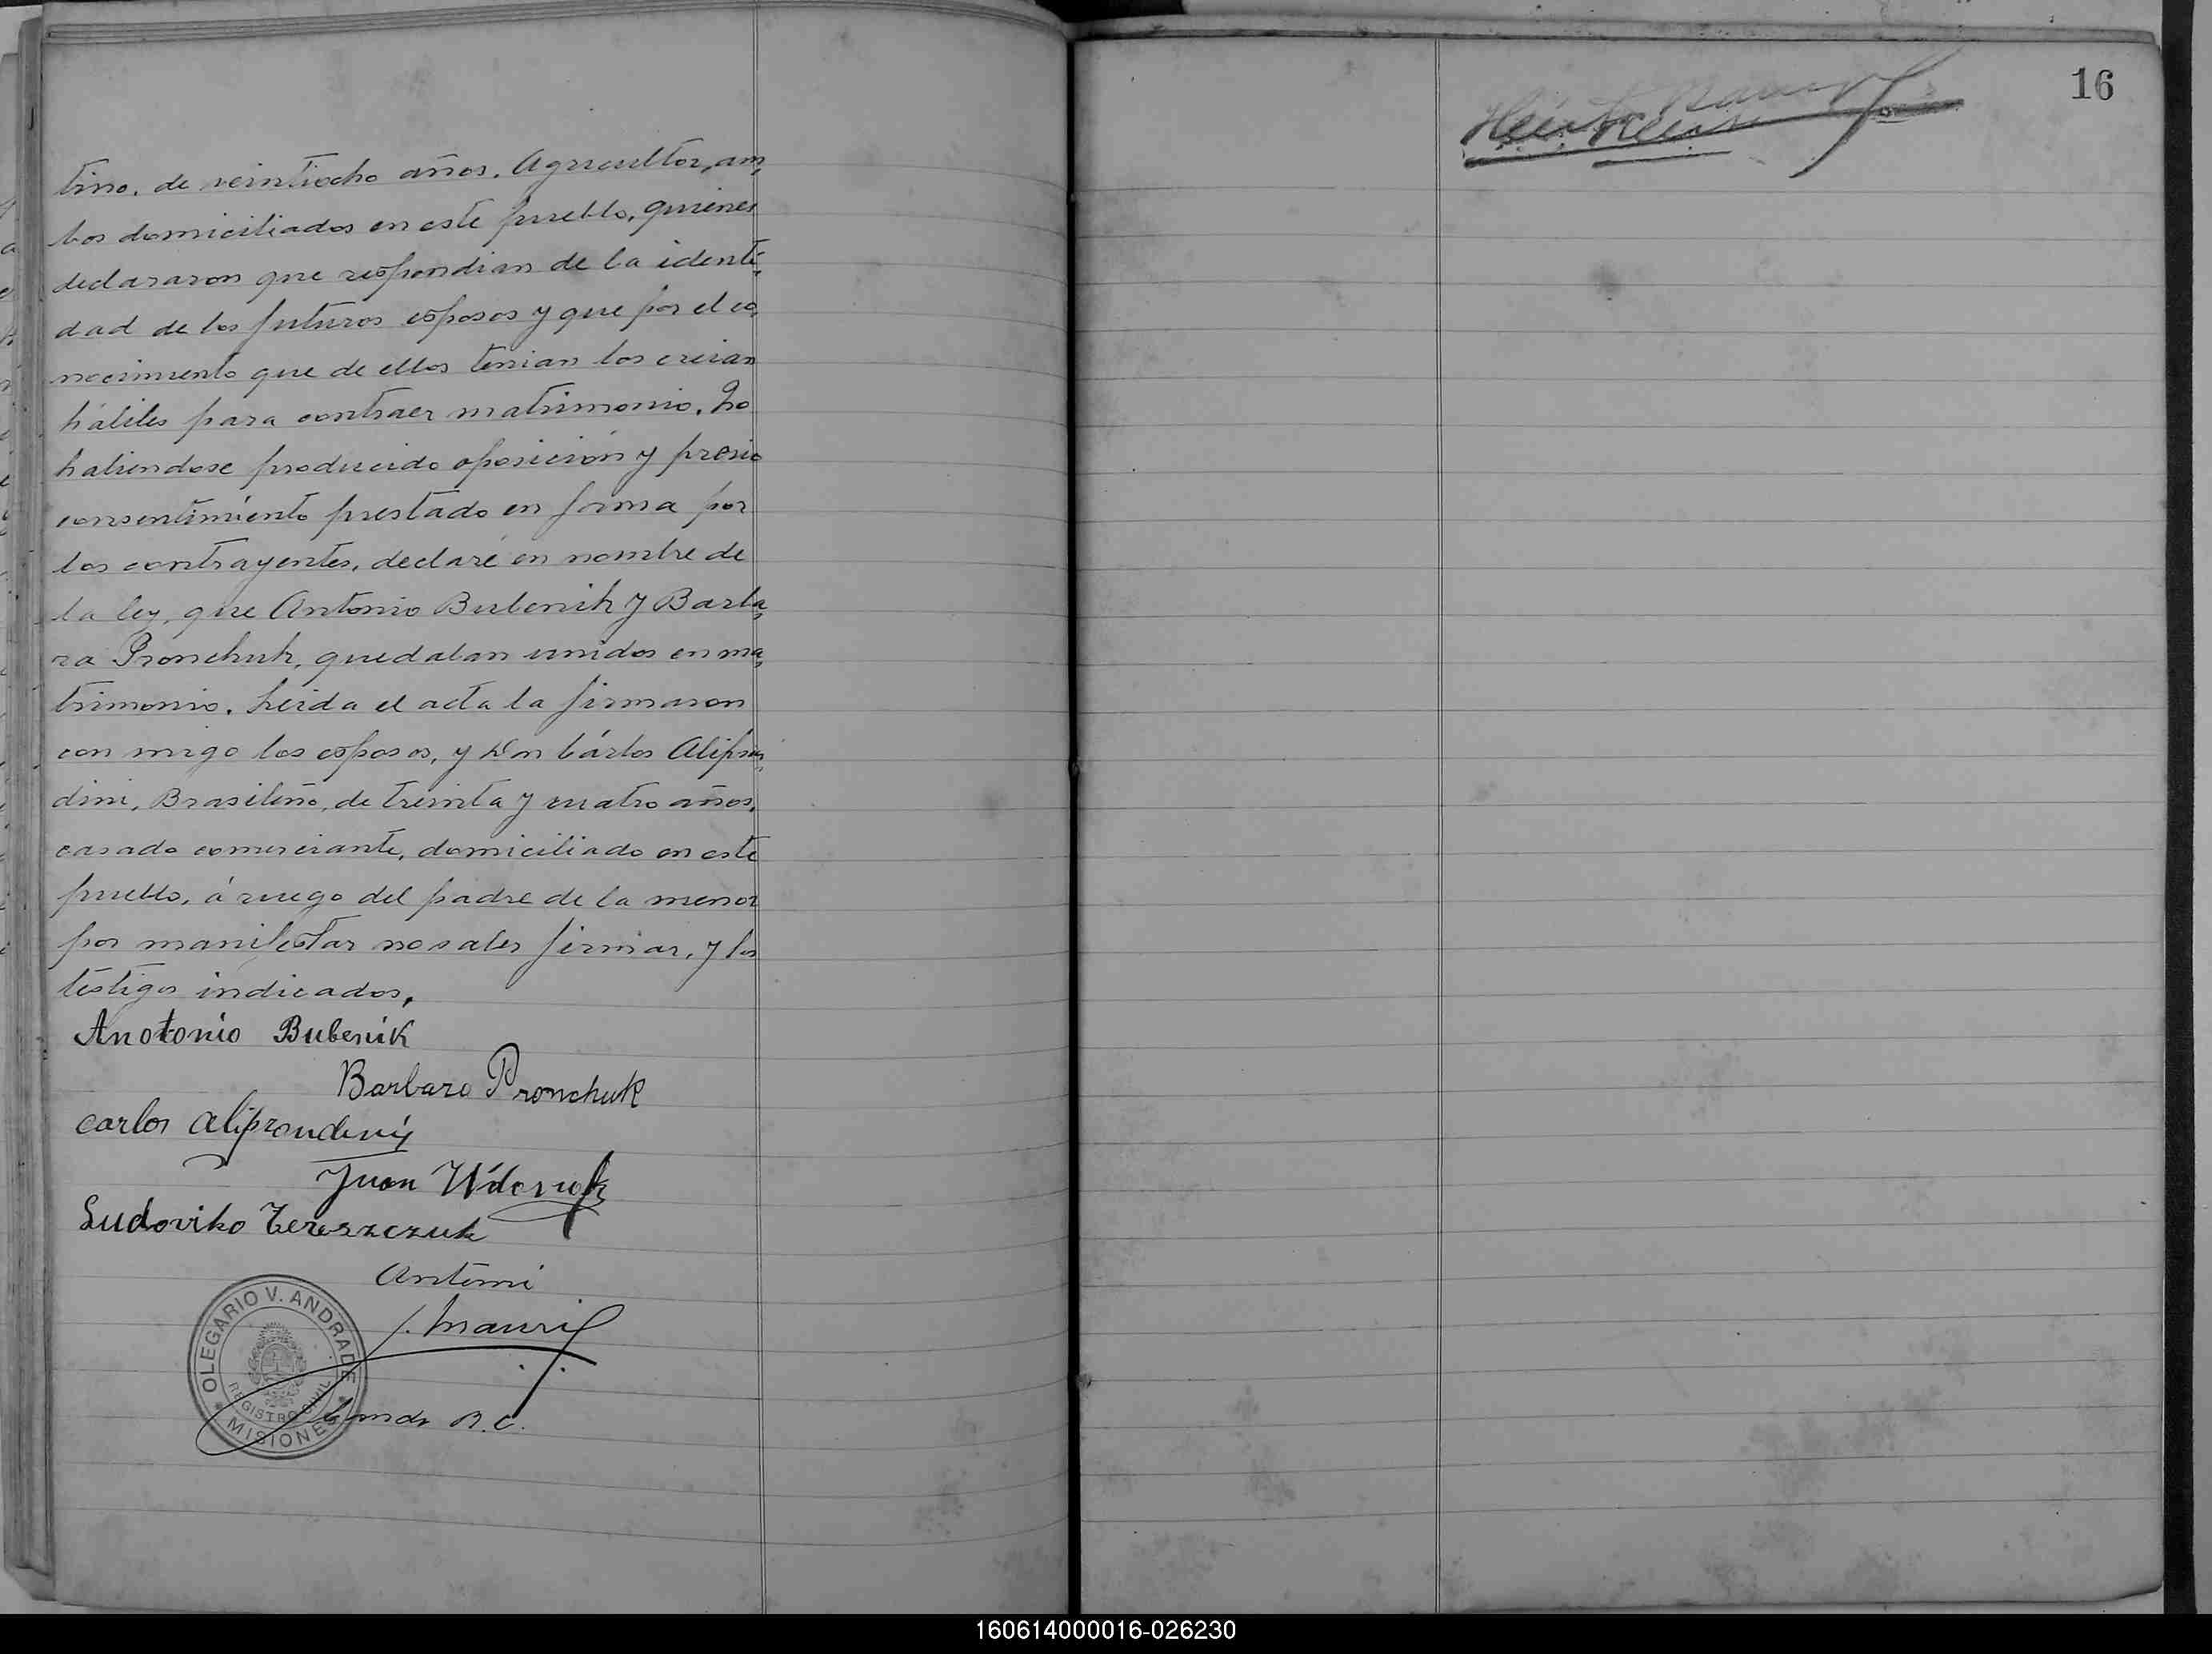 tino, de veintiocho años, Agricultor, am,
bos domiciliados en este pueblo, quienes
declararon que respondian de la identi,
dad de los futuros esposos y que por el co,
nocimiento que de ellos tenian los creian
hábiles para contraer matrimonio. No
habiendose producido oposición y previo
consentimiento prestado en forma por
los contrayentes, declaré en nombre de
la ley, que Antonio Bubenik y Barba,
ra Pronchuk, quedaban unidos en ma,
trimonio. Leida el acta la firmaron
con migo los esposos, y Don Cárlos Alipran,
dini, Brasileño, de treinta y cuatro años,
casado comerciante, domiciliado en este
pueblo, á ruego del padre de la menor
por manifestar no saber firmar, y los
testigos indicados.
Anotonio Bubenik
Barbara Pronchuk
Carlos Aliprandini
Juan
Ludoviko Tereszczuk
Antemi
J. Mauri
R.C.
OLEGARIO V. ANDRADE
REGISTRO CIVIL
MISIONES
16
160614000016-026230